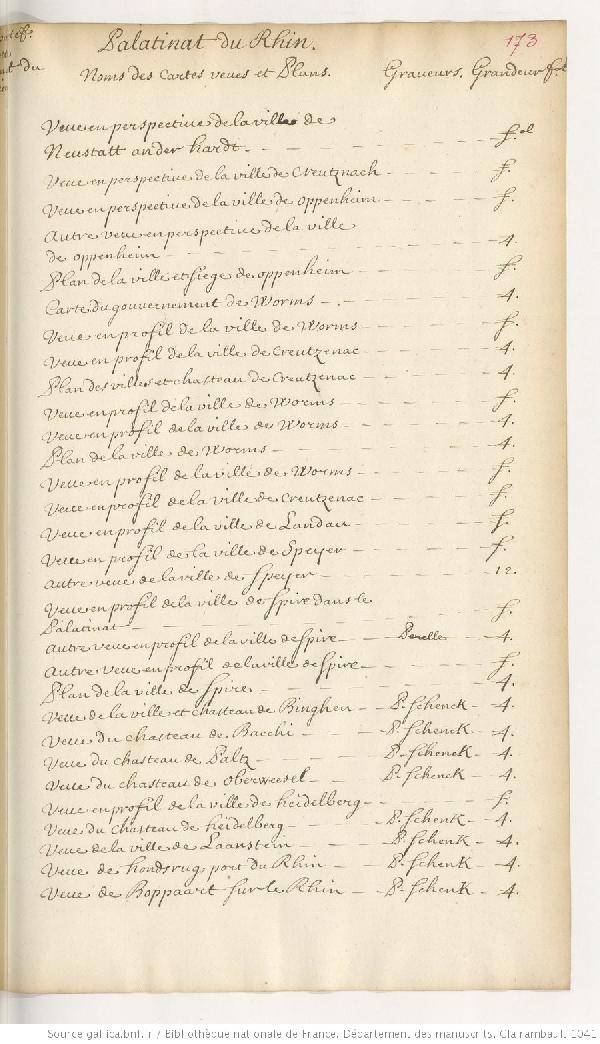 173
Palatinat du Rhin.
Noms des Cartes veues et Plans. Graveurs. Grandeur
Veue en perspective de la ville de
Neustatt an der hardt. f.el
Veue en perspective de la ville de Creutznach f.
Veue en perspective de la ville de oppenheim f.
Autre veue en perspective de la ville
de oppenheim 4.
Plan de la ville et siege de oppenheim f.
Carte du gouvernement de Worms 4.
Veue en profil de la ville de Worms f.
Veue en profil de la ville de Creutzenac 4.
Plan des villes et chasteau de Creutzenac 4.
Veue en profil de la ville de Worms f.
Veue en profil de la ville de Worms 4.
Plan de la ville de Worms 4.
Veue en profil de la ville de Worms f.
Veue en profil de la ville de Creutzenac f.
Veue en profil de la ville de Landau f.
Veue en profil de la ville de Speyer f.
Autre veue de la ville de Speyer 12.
Veue en profil de la ville de Spire dans le
Palatinat f.
Autre veue en profil de la ville de Spire Perelle 4.
Autre Veue en profil de la ville de Spire f.
Plan de la ville de Spire. 4.
Veue de la ville et chasteau de Binghen P. Schenck 4.
Veue du chasteau de Bacchi P. Schenck 4.
Veue du chasteau de Paltz P. Schenck 4.
Veue du chasteau de oberweesel P. Schenck 4.
Veue en profil de la ville de heidelberg f.
Veue du chasteau de heidelberg P. Schenk 4.
Veue de la ville de Laanstein P. Schenk 4.
Veue de hondsrug port du Rhin P. Schenk 4.
Veue de Boppaart sur le Rhin P. Schenk 4.
Source gallica.bnf.fr / Bibliothèque nationale de France. Département des manuscrits. Clairambault 1041